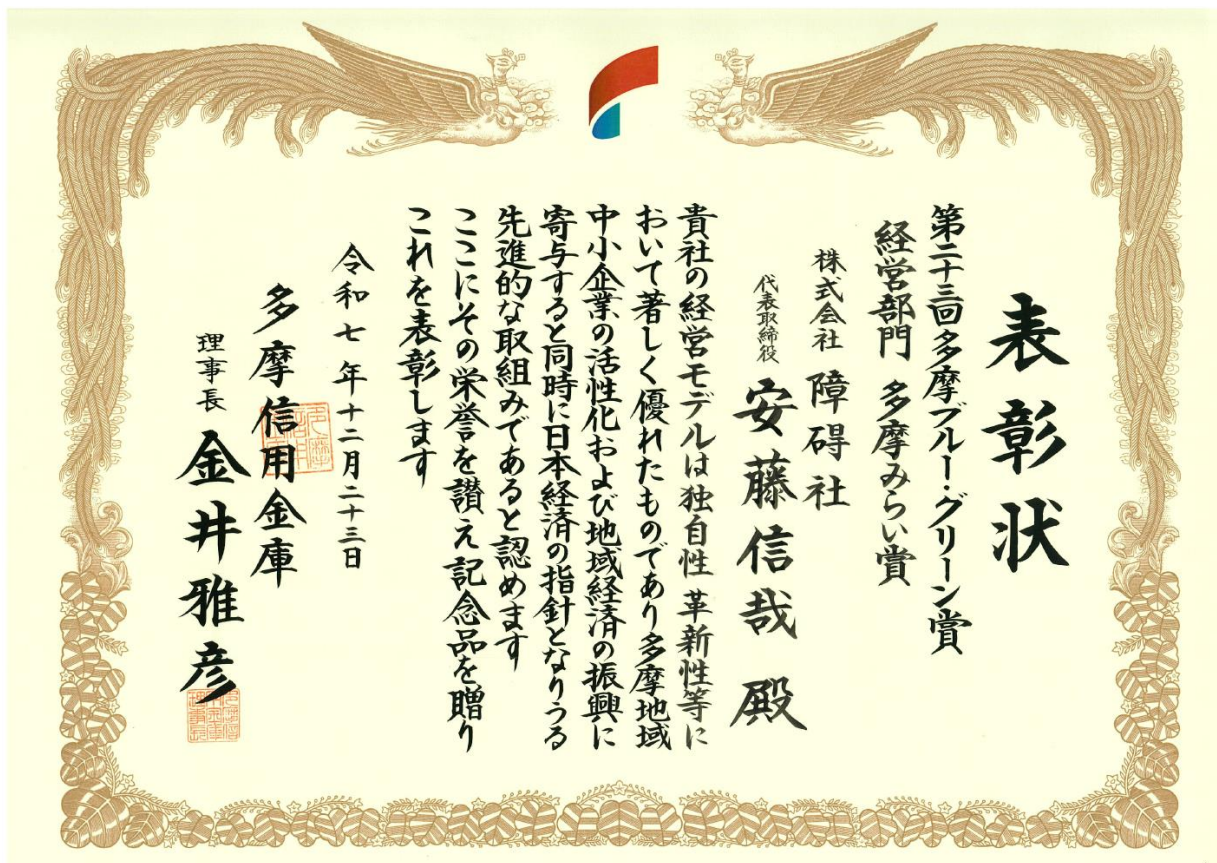 表彰状
第二十三回多摩ブルー・グリーン賞
経営部門 多摩みらい賞
株式会社 障碍社
代表取締役 安藤信哉 殿
貴社の経営モデルは独自性 革新性等に
おいて著しく優れたものであり多摩地域
中小企業の活性化および地域経済の振興に
寄与すると同時に日本経済の指針となりうる
先進的な取組みであると認めます
ここにその栄誉を讃え記念品を贈り
これを表彰します
令和七年十二月二十三日
多摩信用金庫
理事長 金井雅彦